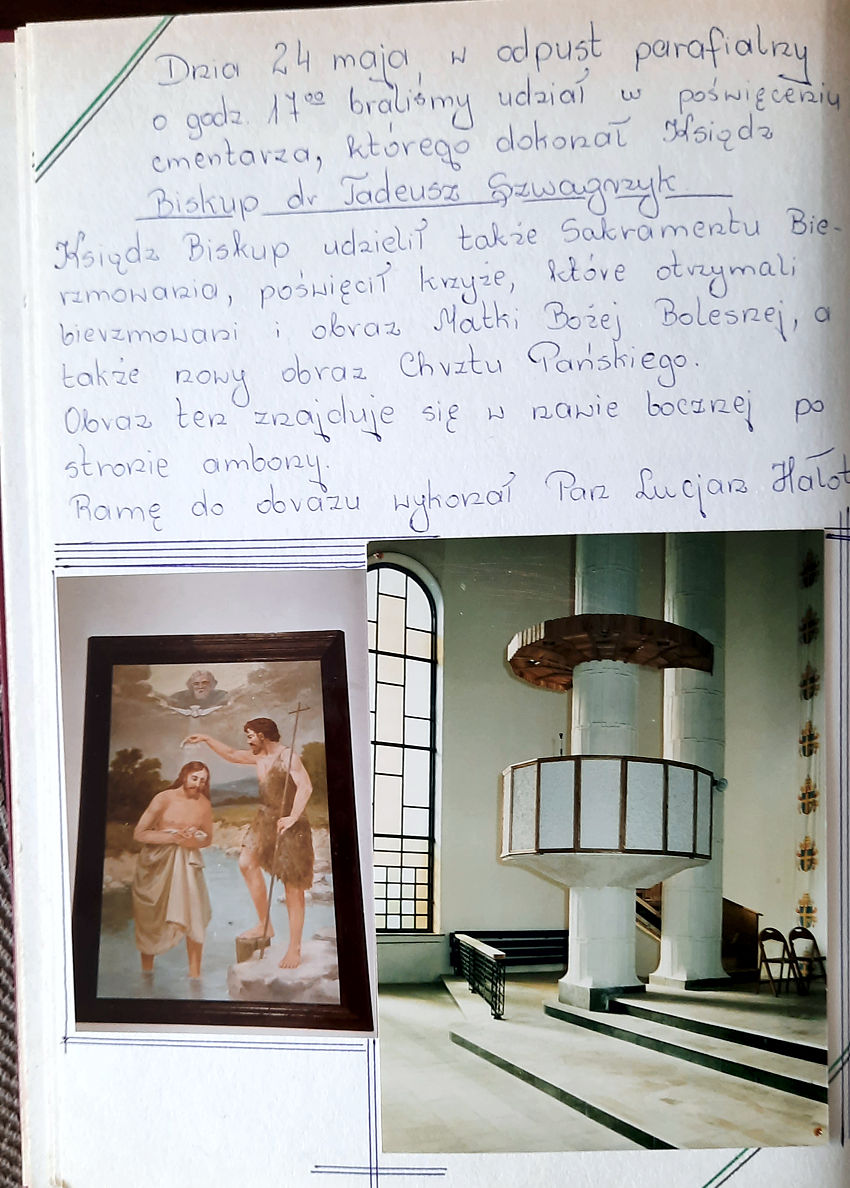 Dnia 24 maja, w odpust parafialny
o godz. 17⁰⁰ braliśmy udział w poświęceniu
cmentarza, którego dokonał Ksiądz
Biskup dr Tadeusz Szwagrzyk.
Ksiądz Biskup udzielił także Sakramentu Bie-
rzmowania, poświęcił krzyże, które otrzymali
bierzmowani i obraz Matki Bożej Bolesnej, a
także nowy obraz Chrztu Pańskiego.
Obraz ten znajduje się w nawie bocznej po
stronie ambony.
Ramę do obrazu wykonał Pan Lucjan Hałot